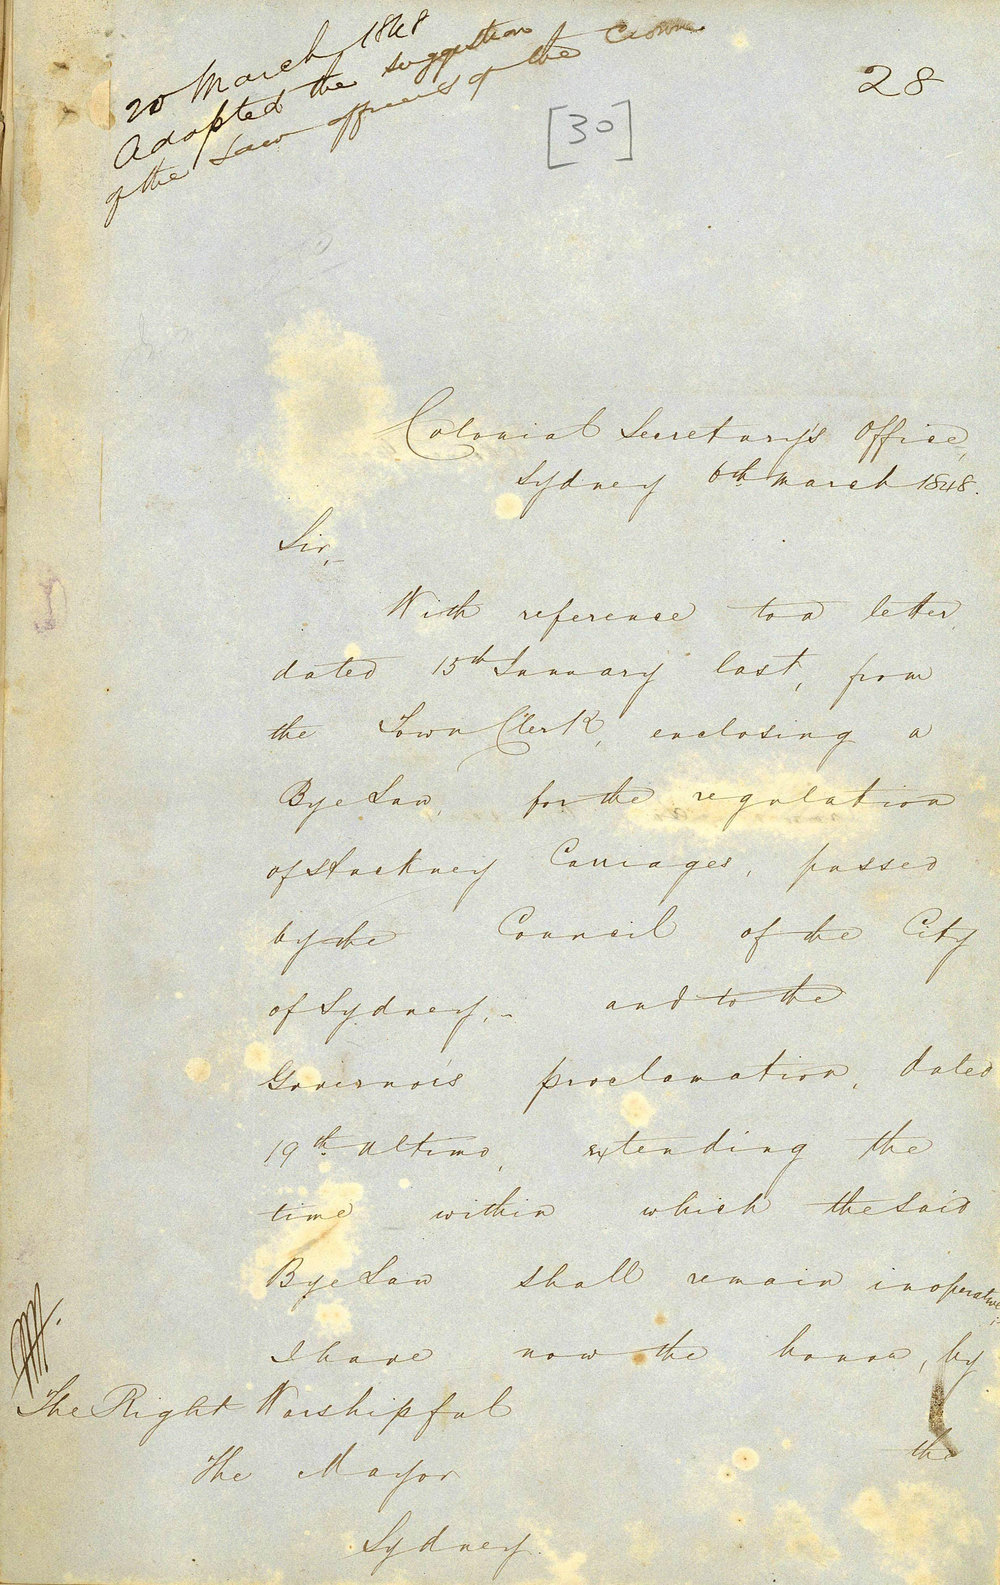 20 March 1848
Adopted the suggestion
of the Law officers of the Crown
28
[30]
Colonial Secretary's Office,
Sydney 6th March 1848.
Sir,
With reference to a letter
dated 15th January last, from
the Town Clerk, enclosing a
Bye Law, for the regulation
of Hackney Carriages, passed
by the Council of the City
of Sydney, - and to the
Governor's proclamation, dated
19th Ultimo, extending the
time within which the said
Bye Law shall remain inoperative;
I have now the honor, by
The Right Worshipful
the
The Mayor
Sydney.